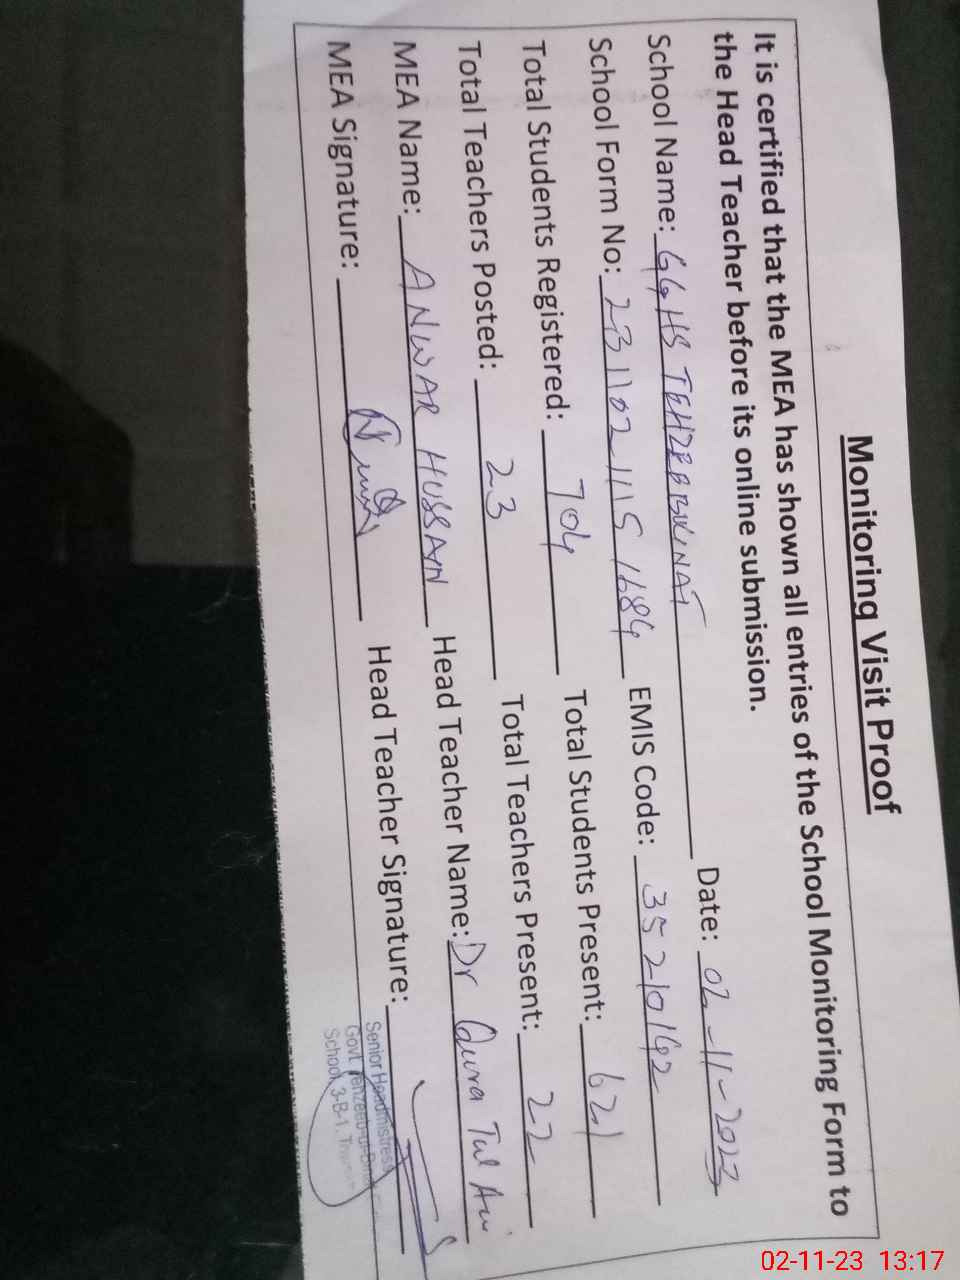 Monitoring Visit Proof
It is certified that the MEA has shown all entries of the School Monitoring Form to
the Head Teacher before its online submission.
School Name: GGHS TEHZEEBULNAT Date: 02-11-2023
School Form No: 231102 1115 1684 EMIS Code: 35210142
Total Students Registered: 704 Total Students Present: 621
Total Teachers Posted: 23 Total Teachers Present: 22
MEA Name: ANWAR HUSSAIN Head Teacher Name: Dr Qura Tul
MEA Signature: Head Teacher Signature:
Senior Headmistress
Govt. Tehzeeb-ul-
School, 3-B-1,
02-11-23 13:17